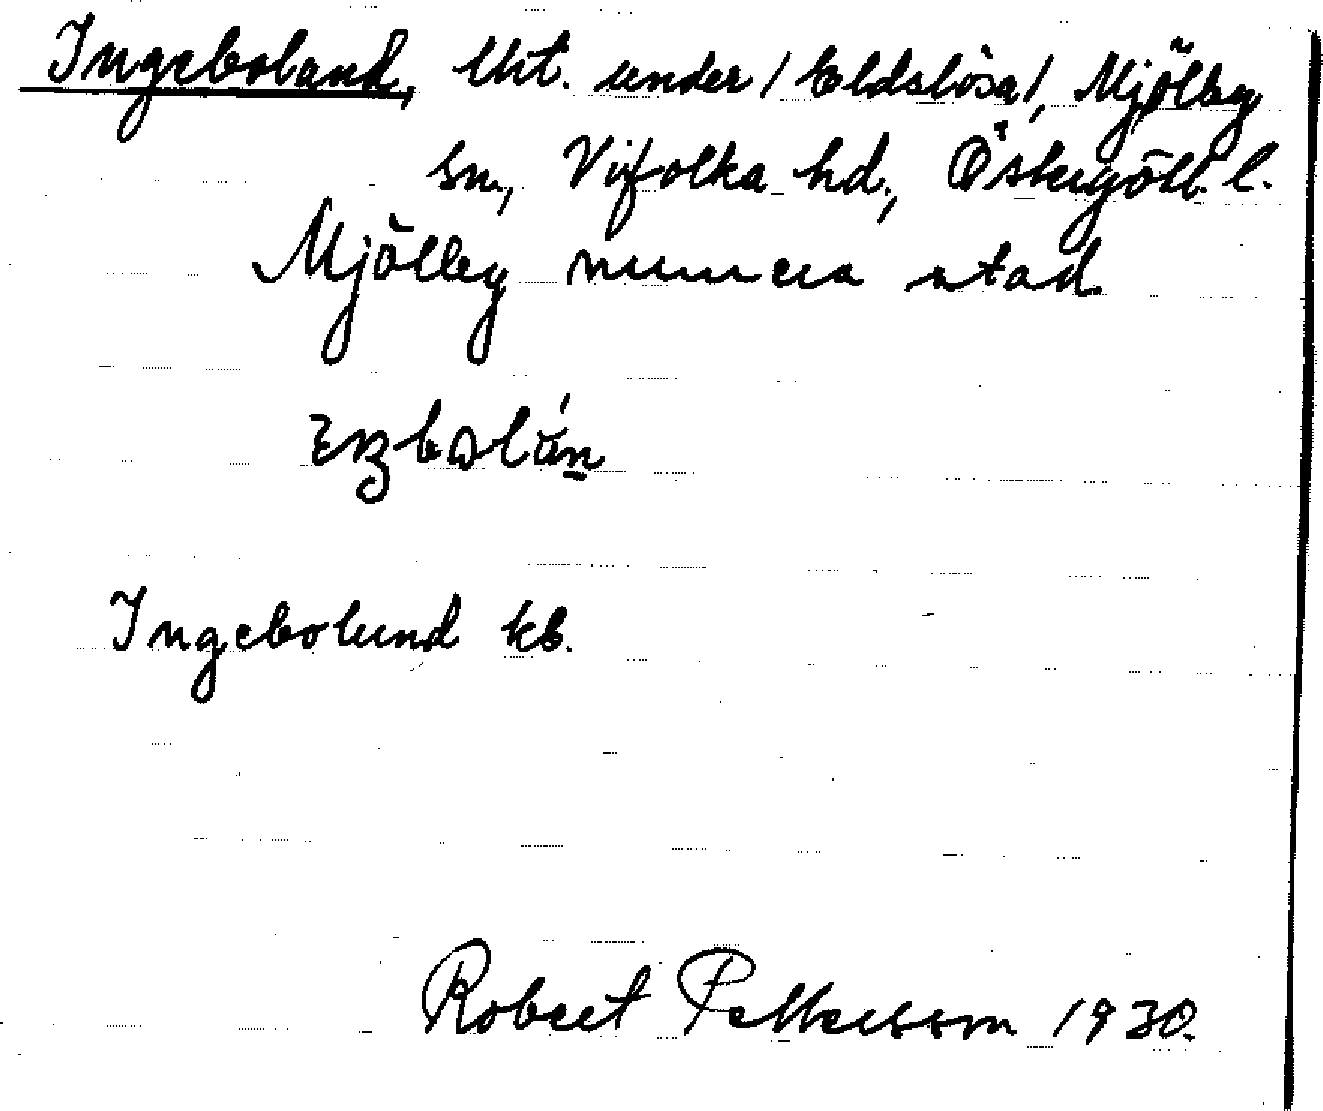 Ingeboland, lht. under / Eldslösa /, Mjölby
sn., Vifolka hd., Östergötl. l.
Mjölby numera stad
Ingebolund kb.
Robert Pettersson 1930.